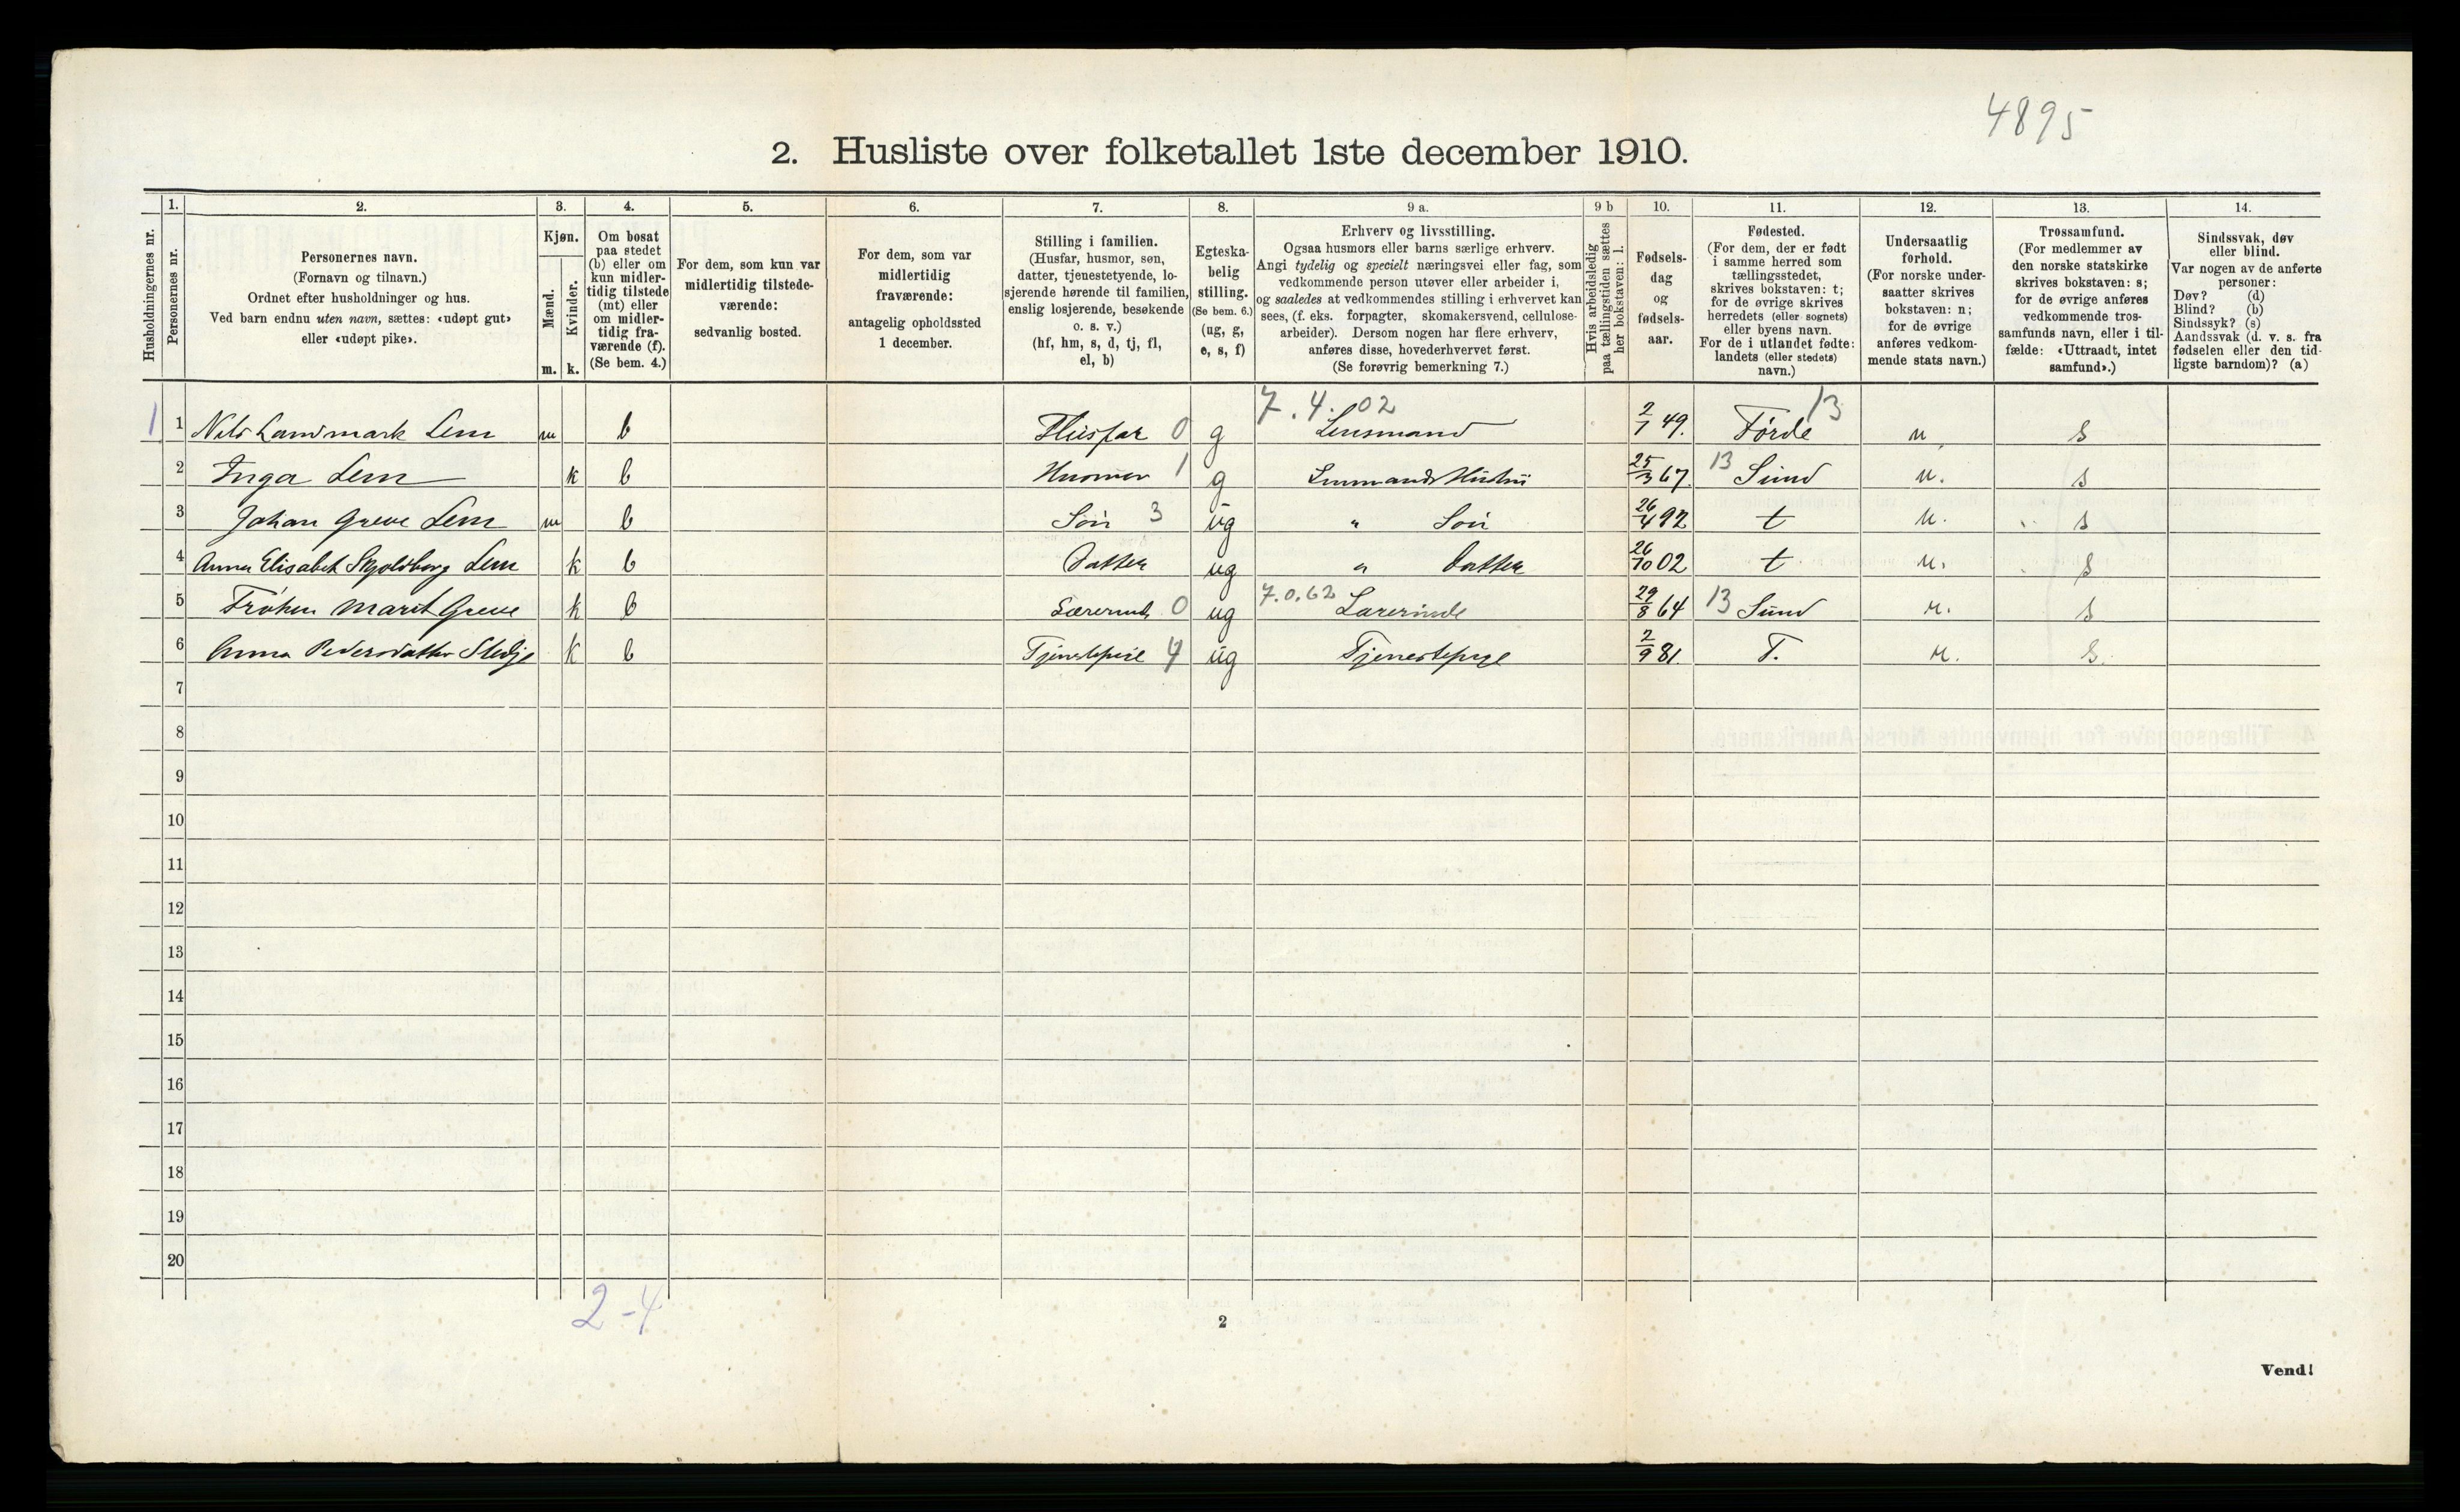 4895
2. Husliste over folketallet 1ste december 1910.
Husholdningernes nr.
1.
Personernes nr.
2.
Personernes navn.
(Fornavn og tilnavn.)
Ordnet efter husholdninger og hus.
Ved barn endnu uten navn, sættes: «udøpt gut»
eller «udøpt pike».
3.
Kjøn.
Mænd.
Kvinder.
m. k.
4.
Om bosat
paa stedet
(b) eller om
kun midler-
tidig tilstede
(mt) eller
om midler-
tidig fra-
værende (f).
(Se bem. 4.)
5.
For dem, som kun var
midlertidig tilstede-
værende:
sedvanlig bosted.
6.
For dem, som var
midlertidig
fraværende:
antagelig opholdssted
1 december.
7.
Stilling i familien.
(Husfar, husmor, søn,
datter, tjenestetyende, lo-
sjerende hørende til familien,
enslig losjerende, besøkende
o. s. v.)
(hf, hm, s, d, tj, fl,
el, b)
8.
Egteska-
belig
stilling.
(Se bem. 6.)
(ug, g,
e, s, f)
9 a.
Erhverv og livsstilling.
Ogsaa husmors eller barns særlige erhverv.
Angi tydelig og specielt næringsvei eller fag, som
vedkommende person utøver eller arbeider i,
og saaledes at vedkommendes stilling i erhvervet kan
sees, (f. eks. forpagter, skomakersvend, cellulose-
arbeider). Dersom nogen har flere erhverv,
anføres disse, hovederhvervet først.
(Se forøvrig bemerkning 7.)
9 b
Hvis arbeidsledig
paa tællingstiden sættes
her bokstaven: l.
10.
Fødsels-
dag
og
fødsels-
aar.
11.
Fødested.
(For dem, der er født
i samme herred som
tællingsstedet,
skrives bokstaven: t;
for de øvrige skrives
herredets (eller sognets)
eller byens navn.
For de i utlandet fødte:
landets (eller stedets)
navn.)
12.
Undersaatlig
forhold.
(For norske under-
saatter skrives
bokstaven: n;
for de øvrige
anføres vedkom-
mende stats navn.)
13.
Trossamfund.
(For medlemmer av
den norske statskirke
skrives bokstaven: s;
for de øvrige anføres
vedkommende tros-
samfunds navn, eller i til-
fælde: «Uttraadt, intet
samfund».)
14.
Sindssvak, døv
eller blind.
Var nogen av de anførte
personer:
Døv? (d)
Blind? (b)
Sindssyk? (s)
Aandssvak (d. v. s. fra
fødselen eller den tid-
ligste barndom)? (a)
7.4.02 13
1 1 Nils Landmark Lem m b Husfar 0 g Lensmand 2/7 49. Førde n s
2 Inga Lem k b Husmor 1 g Lensmands Hustru 25/3 67. 13 Sund n. s
3 Johan Greve Lem m b Søn 3 ug " Søn 26/4 92 t n. s
4 Anna Elisabet Skjoldborg Lem k b Datter ug " Datter 26/10 02 t n. s
7.0.62
5 Frøken Marit Greve k b Lærerinde 0 ug Lærerinde 29/8 64 13 Sund n. s
6 Anna Pedersdatter Stedje k b Tjenestepige 4 ug Tjenestepige 2/9 81. T. n. s.
7
8
9
10
11
12
13
14
15
16
17
18
19
20
2-4
2
Vend!